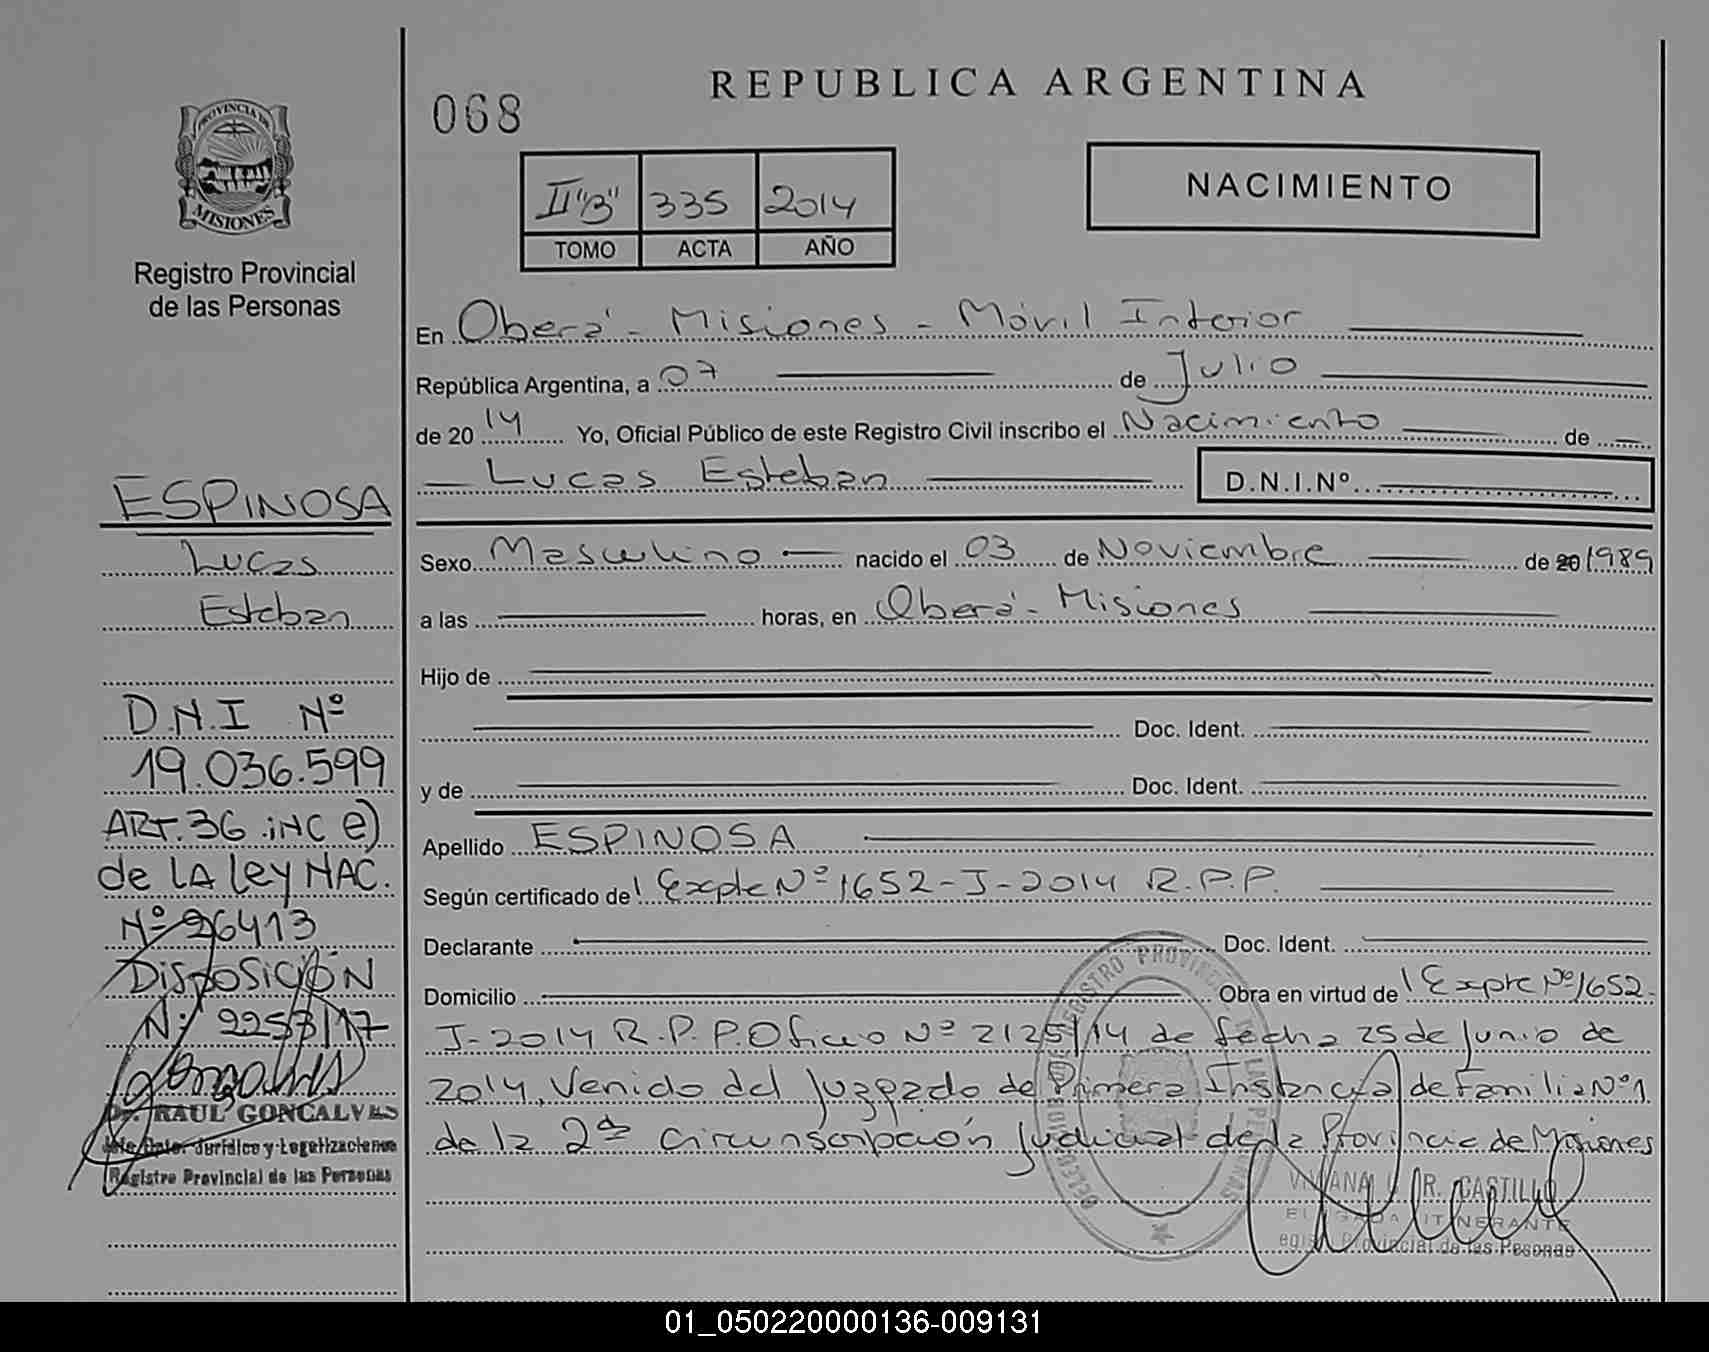 PROVINCIA DE
MISIONES
Registro Provincial
de las Personas
ESPINOSA
Lucas
Esteban
D.N.I Nº
19.036.599
ART. 36 inc e)
de LA Ley NAC.
Nº 26413
Disposición
N: 2253/17
Dr. RAUL GONCALVES
Jefe Dpto. Jurídico y Legalizaciones
Registro Provincial de las Personas
068
REPUBLICA ARGENTINA
II "B" 335 2014
TOMO ACTA AÑO
NACIMIENTO
En Oberá - Misiones - Móvil Interior
República Argentina, a 07 de Julio
de 2014 Yo, Oficial Público de este Registro Civil inscribo el Nacimiento de
Lucas Esteban D.N.I.Nº
Sexo Masculino nacido el 03 de Noviembre de 20 1989
a las horas, en Oberá - Misiones
Hijo de
Doc. Ident.
y de Doc. Ident.
Apellido ESPINOSA
Según certificado de Expte Nº 1652-J-2014 R.P.P.
Declarante Doc. Ident.
Domicilio Obra en virtud de Expte Nº 1652-
J-2014 R.P.P. Oficio Nº 2125/14 de fecha 25 de Junio de
2014, Venido del Juzgado de Primera Instancia de Familia Nº 1
de la 2da Circunscripción Judicial de la Provincia de Misiones
R. CASTILLO
ITINERANTE
Provincial de las Pesonas
01_050220000136-009131